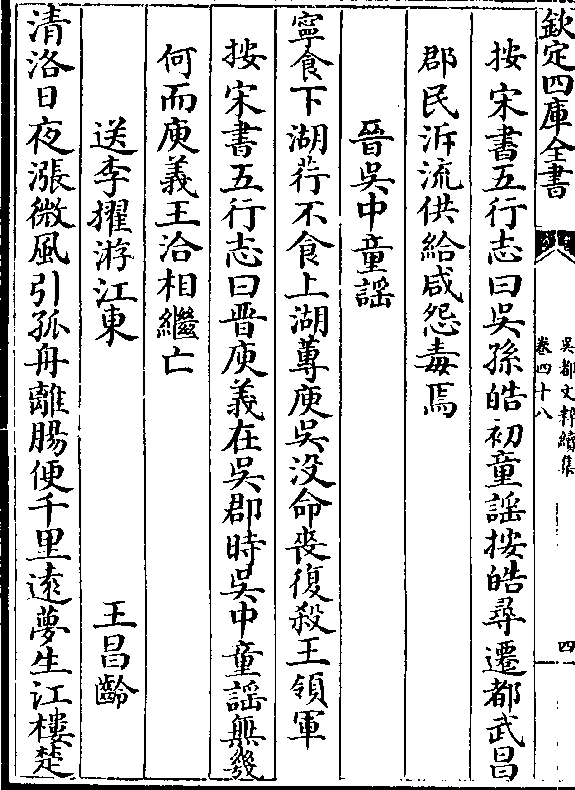 欽定四庫全書
吳都文粹續集
卷四十八
四
按宋書五行志曰吳孫皓初童謡按皓尋遷都武昌
郡民泝流供給咸怨毒焉
晉吳中童謡
寧食下湖荇不食上湖蓴庾吳没命喪復殺王領軍
按宋書五行志曰晋庾義在吳郡時吳中童謡無幾
何而庾義王洽相繼亡
送李擢游江東
王昌齡
清洛日夜漲微風引孤舟離腸便千里遠夢生江樓楚